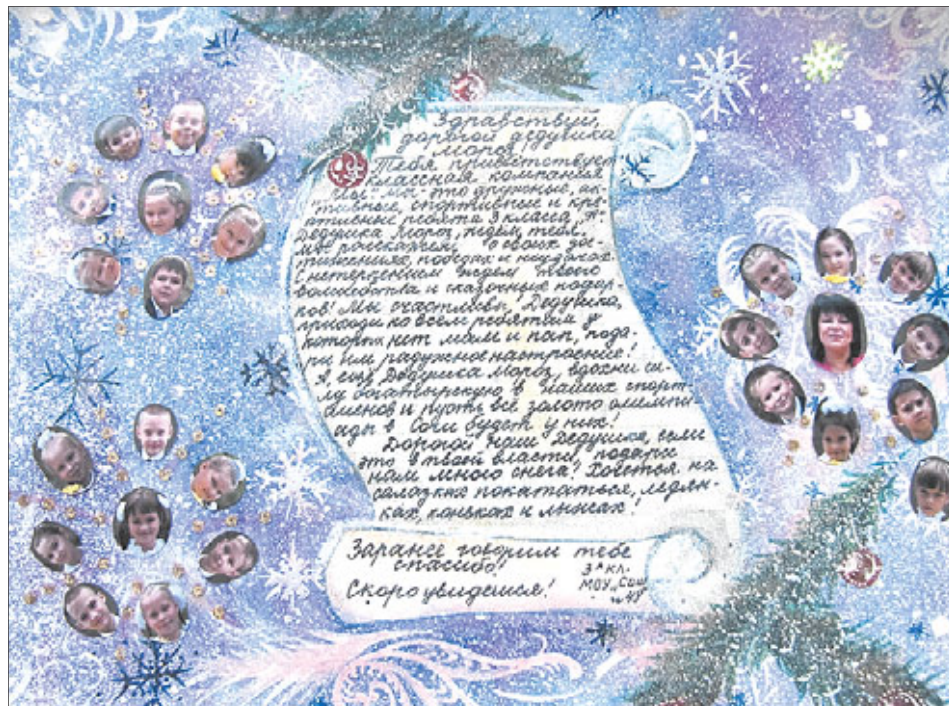 Здравствуй,
дорогой дедушка
Мороз!
Тебя приветствует
классная компания
"Мы". "Мы"-это дружные, ак-
тивные, спортивные и кре-
ативные ребята 3 класса "А".
Дедушка Мороз, ждём тебя.
Мы расскажем о своих дос-
тижениях, победах и неудачах.
С нетерпением ждем твоего
волшебства и сказочных подар-
ков! Мы счастливы! Дедушка,
приходи ко всем ребятам у
которых нет мам и пап, пода-
ри им радужное настроение!
А, ещё Дедушка Мороз, вдохни си-
лу богатырскую в наших спорт-
сменов и пусть всё золото олимпи-
ады в Сочи будет у них!
Дорогой наш Дедушка, если
это в твоей власти, подари
нам много снега! Хочется на
салазках покататься, ледян-
ках, коньках и лыжах!
Заранее говорим тебе
спасибо!
Скоро увидимся!
3А кл.
МОУ "Сош